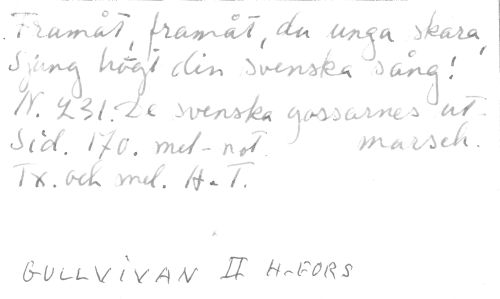 Framåt, framåt, du unga skara,
Sjung högt din svenska sång!
N. 231. De svenska gossarnes ut-
Sid. 170. mel-not. marsch.
Tx. och mel. H-T.
GULLVIVAN II H-FORS